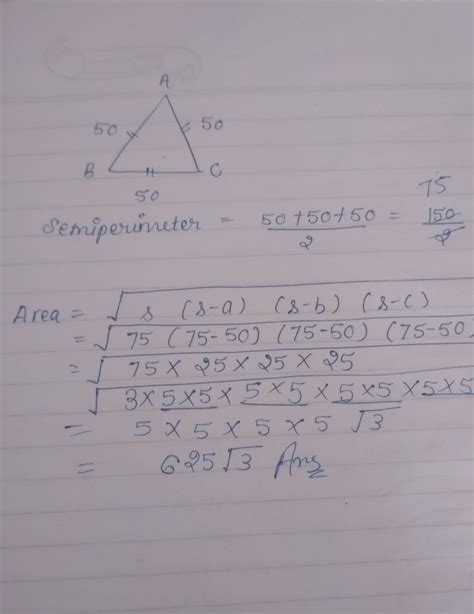 A
50 50
B C
50
75
Semiperimeter = 50+50+50/2 = 150/2
Area = √s (s-a) (s-b) (s-c)
= √75 (75-50) (75-50) (75-50
= √75 × 25 × 25 × 25
√3×5×5×5×5×5×5×5×5
= 5 × 5 × 5 × 5 √3
= 625√3 Ans